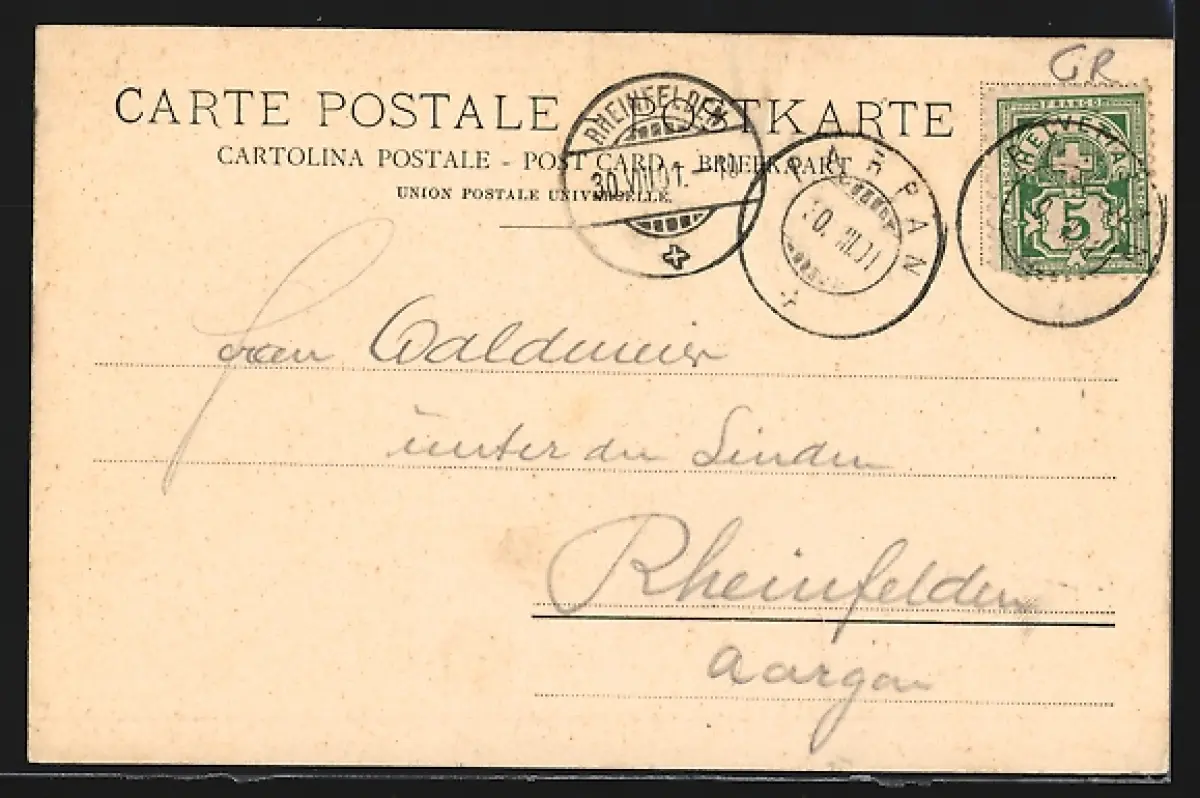 GR
CARTE POSTALE POSTKARTE
CARTOLINA POSTALE - POST CARD - BRIEFKAART
UNION POSTALE UNIVERSELLE.
RHEINFELDEN
30.VIII.01. - 10
PARPAN
30.VIII.01
FRANCO
HELVETIA
5
Frau Waldmeier
unter den Linden
Rheinfelden
Aargau